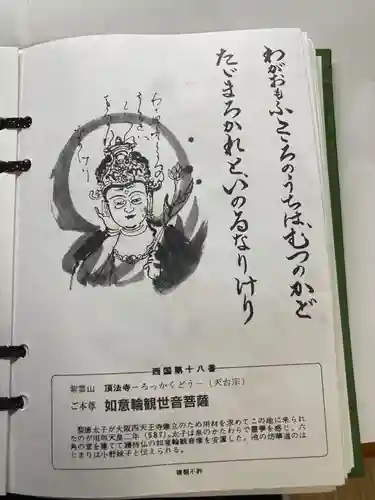 わがおもふこころのうちは、むつのかど
たゞまろかれと、いのるなりけり
西国第十八番
紫雲山 頂法寺-ろっかくどう-（天台宗）
ご本尊 如意輪観世音菩薩
聖徳太子が大阪四天王寺建立のため用材を求めてこの地に来られ
たのが用明天皇二年（587）。太子は泉のかたわらで霊夢を感じ、六
角の堂を建てて護持仏の如意輪観音像を安置した。池の坊華道のは
じまりは小野妹子と伝えられる。
複製不許